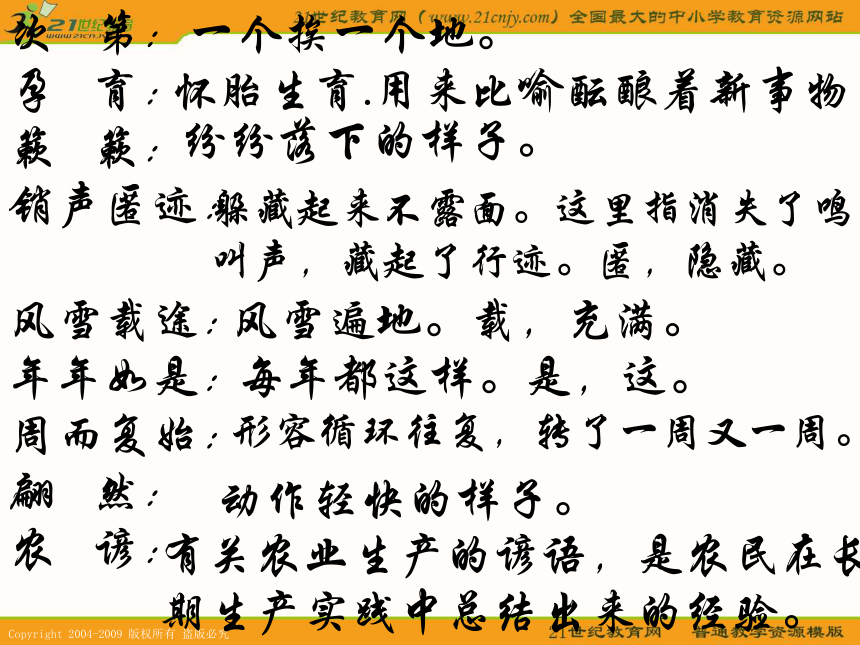 21世纪教育网（www.21cnjy.com）全国最大的中小学教育资源网站
次 第：一个挨一个地。
孕 育：怀胎生育.用来比喻酝酿着新事物
簌 簌：纷纷落下的样子。
销声匿迹：躲藏起来不露面。这里指消失了鸣
叫声，藏起了行迹。匿，隐藏。
风雪载途：风雪遍地。载，充满。
年年如是：每年都这样。是，这。
周而复始：形容循环往复，转了一周又一周。
翩 然：动作轻快的样子。
农 谚：有关农业生产的谚语，是农民在长
期生产实践中总结出来的经验。
Copyright 2004-2009 版权所有 盗版必究
21世纪教育网 普通教学资源模版